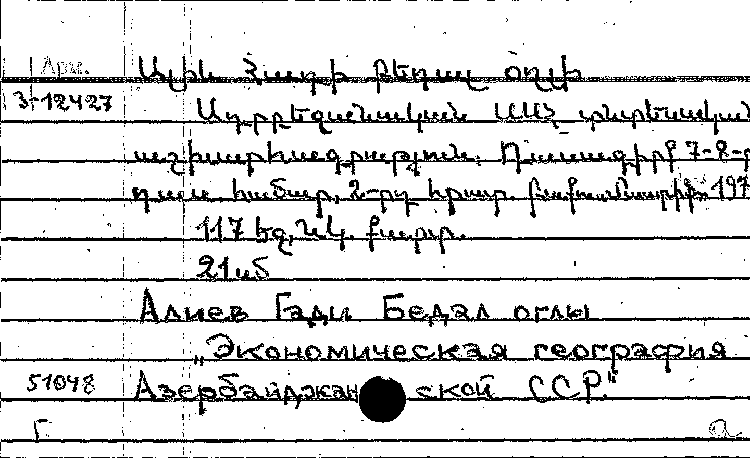 Арм.
Ալիև Հադի Բեդալ օղլի
3-12427
Ադրբեջանական ՍՍՀ տնտեսական
աշխարհագրություն. Դասագիրք 7-8-րդ
դաս. համար, 2-րդ հրատ. Բաքու, Մաարիֆ, 197
117 եջ, նկ. քարտ.
21 սմ
Алиев Гади Бедал оглы
„Экономическая география
51048 Азербайджанской ССР."
Г. а